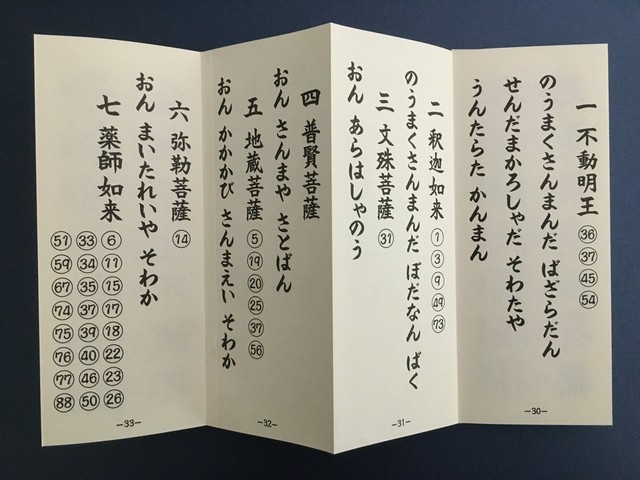 一 不動明王 ㊱ ㊲ ㊺ 54
のうまくさんまんだ ばざらだん
せんだまかろしゃだ そわたや
うんたらた かんまん
−30−
二 釈迦如来 ① ③ ⑨ ㊾ 73
のうまくさんまんだ ぼだなん ばく
三 文殊菩薩 ㉛
おん あらはしゃのう
−31−
四 普賢菩薩
おん さんまや さとばん
五 地蔵菩薩 ⑤ ⑲ ⑳ ㉕ ㊲ 56
おん かかかび さんまえい そわか
−32−
六 弥勒菩薩 ⑭
おん まいたれいや そわか
七 薬師如来
⑥ ⑪ ⑮ ⑰ ⑱ ㉒ ㉓ ㉖
㉝ ㉞ ㉟ ㊲ ㊴ ㊵ ㊻ ㊿
51 59 67 74 75 76 77 88
−33−